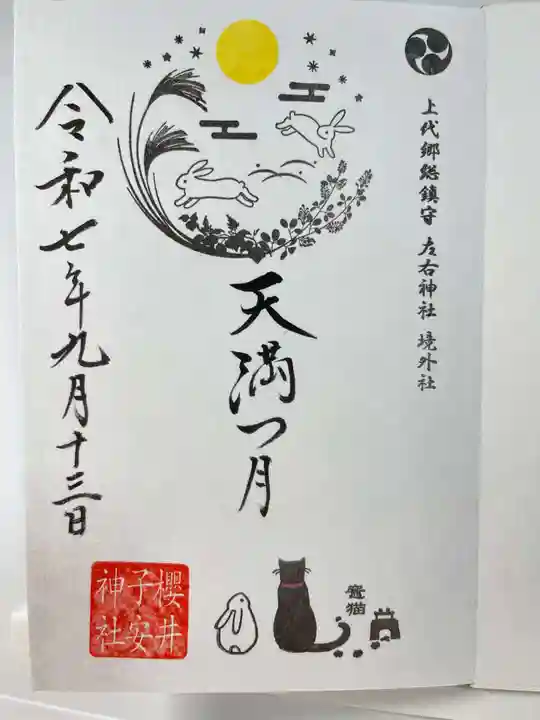 上代郷総鎮守 左右神社 境外社
天満つ月
令和七年九月十三日
櫻井
子安
神社